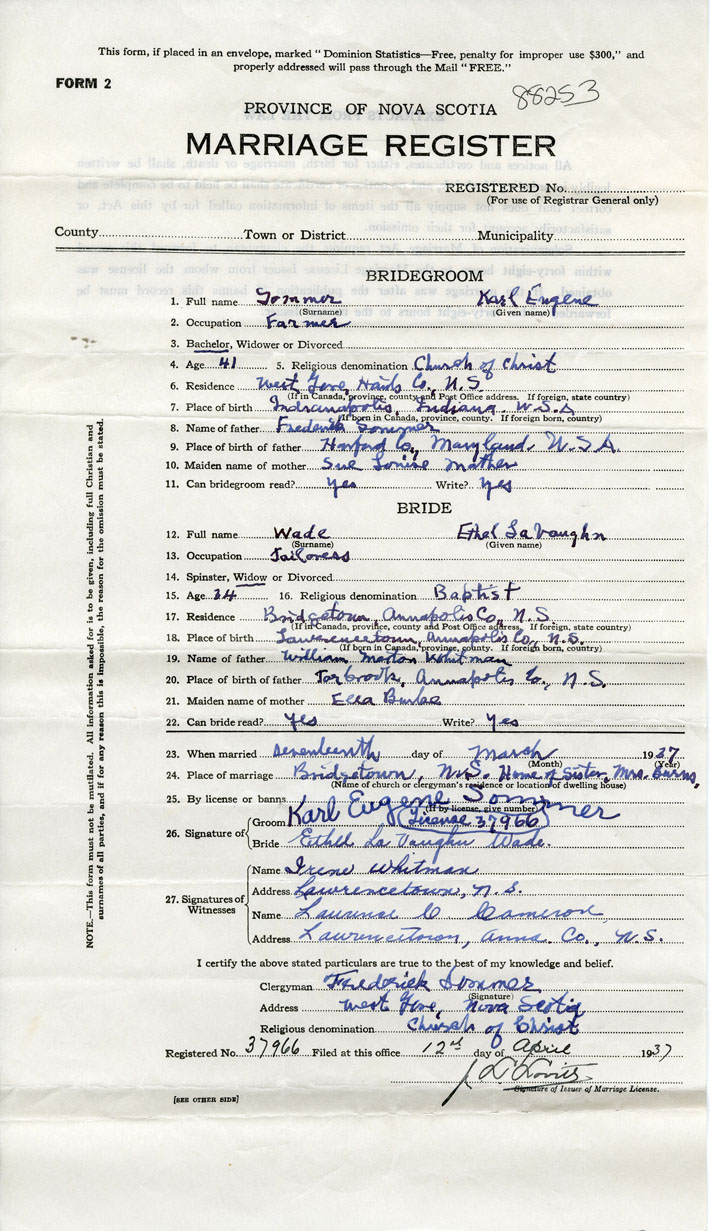 This form, if placed in an envelope, marked "Dominion Statistics—Free, penalty for improper use $300," and
properly addressed will pass through the Mail "FREE."
FORM 2
88253
PROVINCE OF NOVA SCOTIA
MARRIAGE REGISTER
REGISTERED No.
(For use of Registrar General only)
County Town or District Municipality
BRIDEGROOM
1. Full name Sommer Karl Eugene
(Surname) (Given name)
2. Occupation Farmer
3. Bachelor, Widower or Divorced
4. Age 41 5. Religious denomination Church of Christ
6. Residence West Gore, Hants Co., N.S.
(If in Canada, province, county and Post Office address. If foreign, state country)
7. Place of birth Indianapolis, Indiana U.S.A
(If born in Canada, province, county. If foreign born, country)
8. Name of father Frederick Sommer
9. Place of birth of father Harford Co., Maryland U.S.A.
10. Maiden name of mother Sue Louise Mather
11. Can bridegroom read? Yes Write? Yes
BRIDE
12. Full name Wade Ethel La Vaughn
(Surname) (Given name)
13. Occupation Tailoress
14. Spinster, Widow or Divorced
15. Age 34 16. Religious denomination Baptist
17. Residence Bridgetown, Annapolis Co., N.S.
(If in Canada, province, county and Post Office address. If foreign, state country)
18. Place of birth Lawrencetown, Annapolis Co., N.S.
(If born in Canada, province, county. If foreign born, country)
19. Name of father William Whitman
20. Place of birth of father Torbrook, Annapolis Co., N.S.
21. Maiden name of mother Burke
22. Can bride read? Yes Write? Yes
23. When married seventeenth day of March 1937
(Month) (Year)
24. Place of marriage Bridgetown, N.S. Home of Sister, Mrs. Burns,
(Name of church or clergyman's residence or location of dwelling house)
25. By license or banns
(If by license, give number)
License 37966
26. Signature of Groom Karl Eugene Sommer
Bride Ethel La Vaughn Wade.
27. Signatures of Witnesses
Name Irene Whitman
Address Lawrencetown, N.S.
Name Laurense C Cameron
Address Lawrencetown, Anna. Co., N.S.
I certify the above stated particulars are true to the best of my knowledge and belief.
Clergyman Frederick Sommer
(Signature)
Address West Gore, Nova Scotia
Religious denomination Church of Christ
Registered No. 37966 Filed at this office 12th day of April 1937
Signature of Issuer of Marriage License.
[SEE OTHER SIDE]
NOTE.—This form must not be mutilated. All information asked for is to be given, including full Christian and
surnames of all parties, and if for any reason this is impossible, the reason for the omission must be stated.